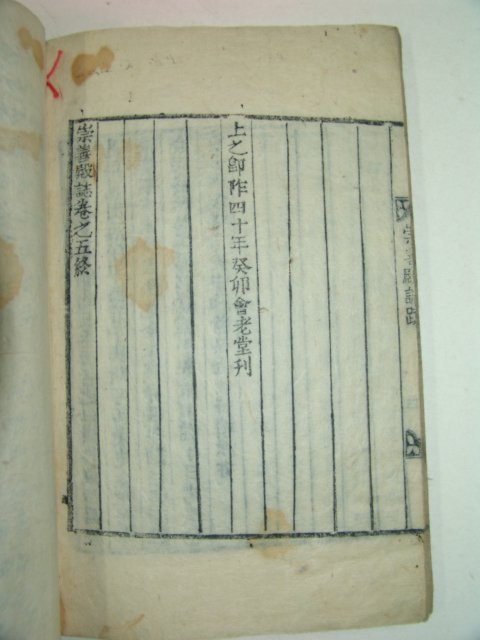 崇善殿誌跋
上之卽阼四十年癸卯會老堂刊
崇善殿誌卷之五終